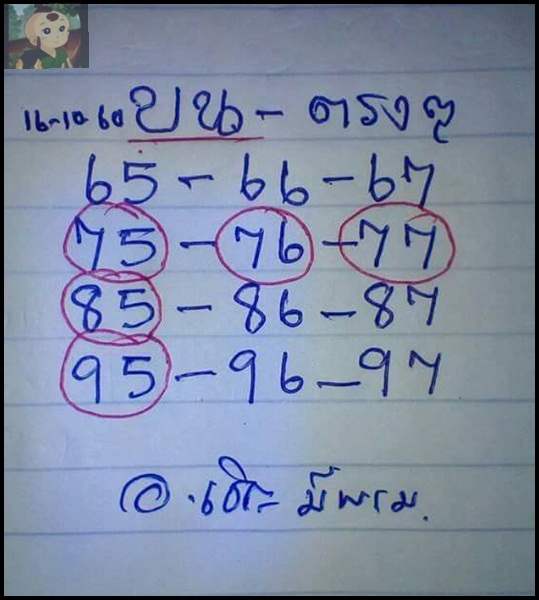 16-10-60 บน - ตรงๆ
65 - 66 - 67
75 - 76 - 77
85 - 86 - 87
95 - 96 - 97
อ.